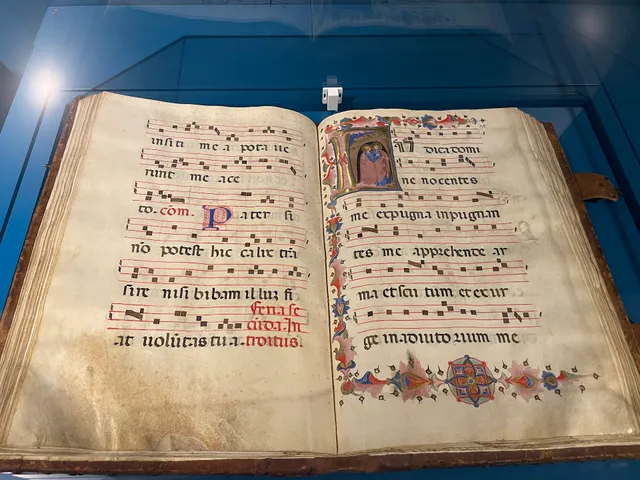 in siti me a pota ue
runt me ace
to. com. Pater si
no potest hic calix trã
sire nisi bibam illuz fi
at uolūtas tu a. Feria se
cūda. In
troitus.
I udica domi
ne nocentes
me expugna inpugnan
tes me apprehende ar
ma et scu tum et exur
ge in adiuto rium me